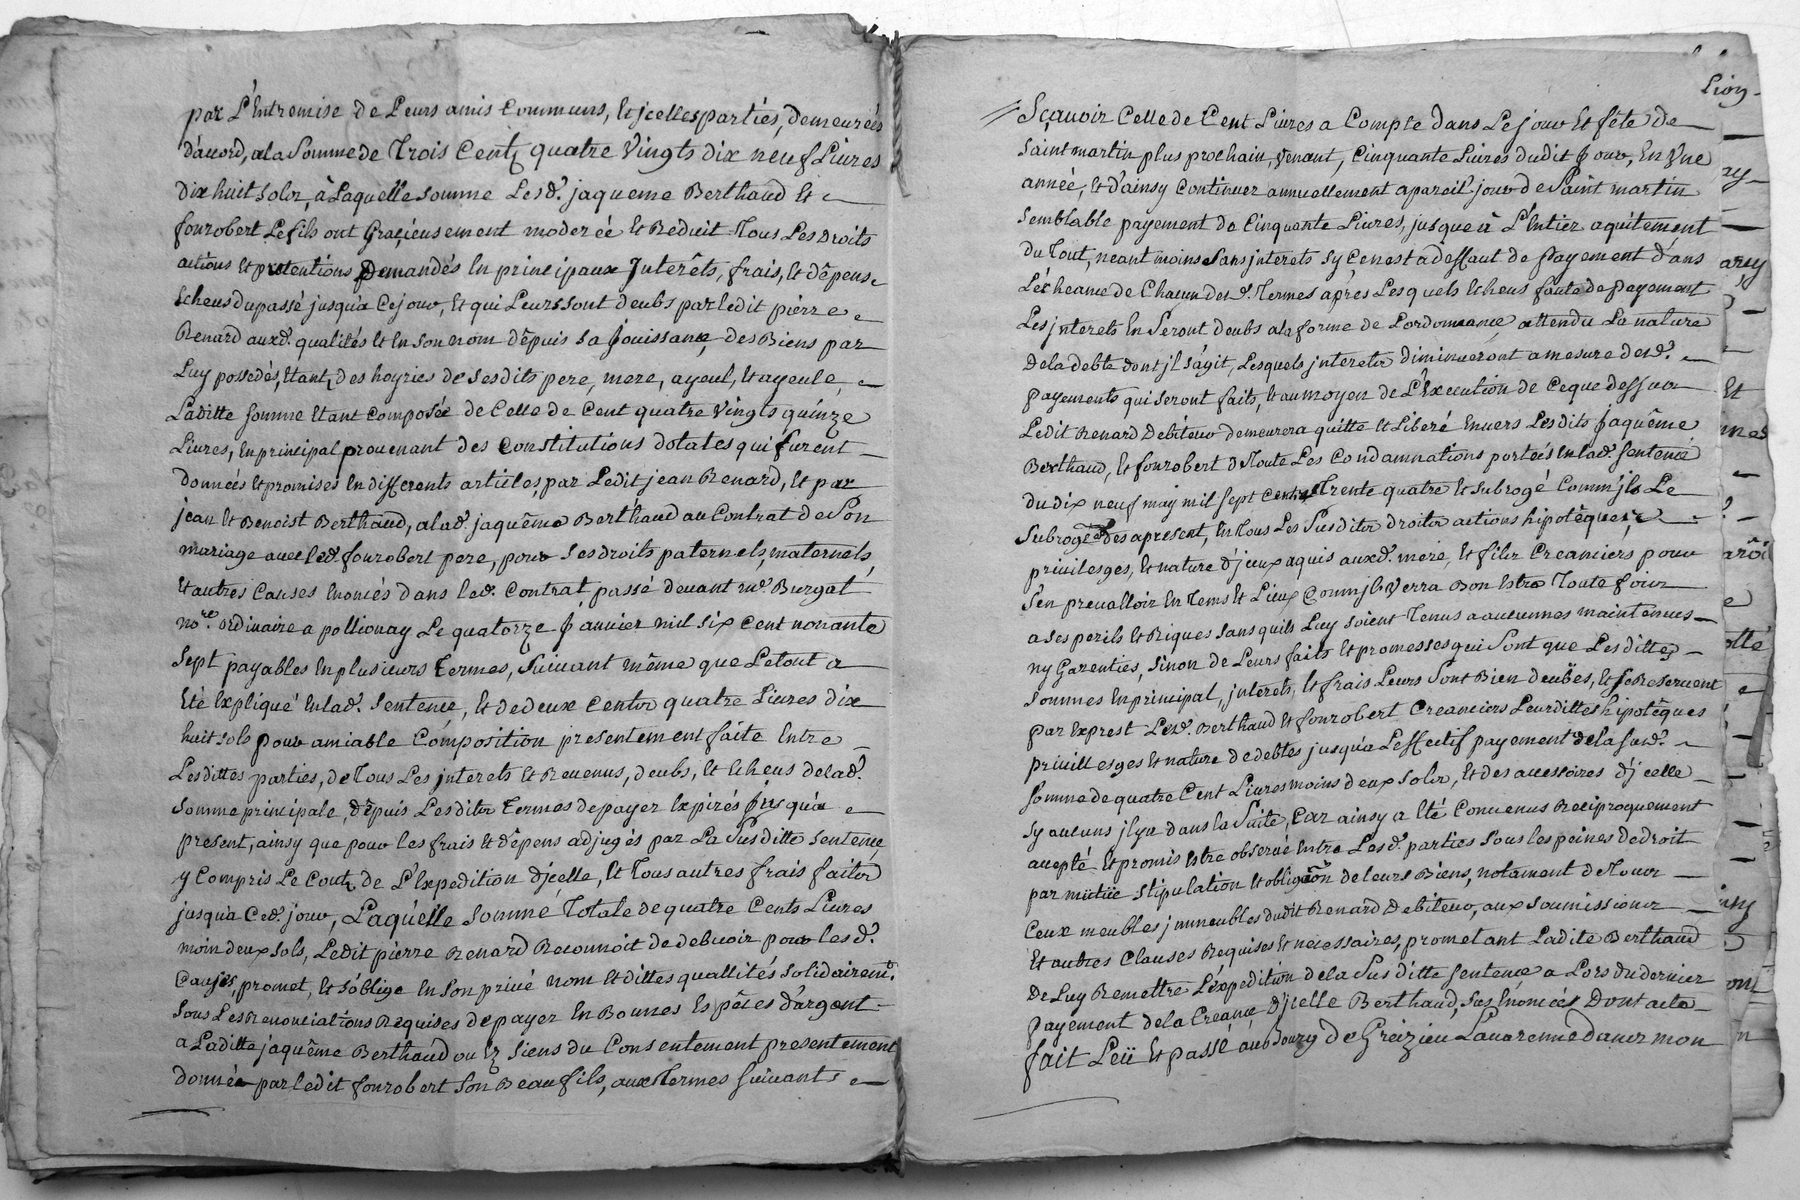 par L'Entremise de Leurs amis Communs, Et jcelles parties, demeureés
d'acord, a la Somme de Trois Centz quatre Vingts dix neuf Livres
Dix huit Solz, à Laquelle Somme Lesd. jaqueme Berthaud Et
fourobert Le fils ont Graçieusement moderéé Et Reduit Tous Les Droits
actions Et pretentions Demandés En principaux Jnterêts, frais, Et dêpens
Echeus du passé jusqu'a Ce jour, Et qui Leurs Sont deubs par Ledit pierre
Renard auxd. qualités Et En Son nom dêpuis Sa Jouissance, des Biens par
Luy possedés, Etantz des hoyries de Sesdits pere, mere, ayeul, Et ayeule,
Laditte Somme Etant Composée de Celle de Cent quatre Vingts quinze
Livres, En principal provenant des Constitutions dotales qui furent
donneés Et promises En differents articles, par Ledit jean Renard, Et par
jean Et Benoist Berthaud, a lad. jaquême Berthaud au Contrat de Son
mariage avec Led. fourobert pere, pour Ses droits paternels, maternels,
Et autres Causes Enoncés dans Led. Contrat passé devant me. Burgat
nore. ordinaire a pollionay Le quatorze Janvier mil Six Cent nonante
Sept payables En plusieurs Termes, Suivant même que Letout a
Eté Expliqué En lad. Sentence, Et de deux Centz quatre Livres dix
huit Sols pour amiable Composition presentement faite Entre
Lesdittes parties, de Tous Les jnterets Et Revenus, deubs, Et Echeus de lad.
Somme principale, dêpuis Lesditz Termes de payer Expirés Jusqu'a
present, ainsy que pour les frais Et dêpens adjugés par La Susditte Sentence
y Compris Le Coutz de L'Expedition d'jcelle, Et Tous autres frais faitz
jusqu'a Ced. jour, Laquelle Somme Totale de quatre Cents Livres
moin deux Sols, Ledit pierre Renard Reconnoit de debvoir pour lesd.
Causes, promet, Et s'oblige En Son privé nom Et dittes quallités Solidairemt.
Sous Les Renonciations Requises de payer En Bonnes Espêces d'argent
a Laditte jaquême Berthaud ou Ez Siens du Consentement presentement
donnée par ledit fourobert Son Beau fils, aux Termes Suivants
Lion
Sçavoir Celle de Cent Livres a Compte dans Le jour Et fête de
Saint martin plus prochain, Venant, Cinquante Livres dudit Jour, En Une
année, Et d'ainsy Continuer annuellement a pareil jour de Saint martin
Semblable payement de Cinquante Livres, jusque à L'Entier aquitement
du Tout, neantmoins Sans jnterets Sy Ce n'est a deffaut de payement dans
L'écheance de Chacun desd. Termes après Lesquels Echeus faute de payement
Les jnterets En Seront deubs a la forme de L'ordonnance attendu La nature
de la debte dont jl s'agit, Lesquels jnteretz diminueront a mesure desd.
payements qui Seront faits, Et au moyen de L'Execution de Ce que dessus
Ledit Renard Debiteur demeurera quitte Et Liberé Envers Lesdits Jaquême
Berthaud, Et fourobert de Toute Les Condamnations porteés En lad. Sentence
du dix neuf may mil Sept Cents Trente quatre Et Subrogé Comm'jls Le
Subrogent des apresent, En Tous Les Susditz droitz actions hipotêques,
privilesges, Et nature d'jceux aquis auxd. mere, Et filz Creanciers pour
S'en prevalloir En Tems Et Lieux Comm'jl Verra Bon Estre Toute foix
a Ses perils Et Riques Sans quils Luy Soient Tenus a aucunnes maintenues
ny Garenties, Sinon de Leurs faits Et promesses qui Sont que Les dittes
Sommes En principal, jnterets, Et frais Leurs Sont Bien deubes, Et se Reservent
par Exprest Lesd. Berthaud Et fourobert Creanciers Leurdittes hipotêques
privillesges Et nature de debtes jusqu'a L'effectif payement de la Susd.
Somme de quatre Cent Livres moins deux Solz, Et des accessoires d'jcelle
Sy aucuns jl y a dans la Suite, Car ainsy a Eté Convenus Reciproquement
accepté Et promis Estre observé Entre Lesd. parties Sous les peines de droit
par mutüe Stipulation Et obligãon de leurs Biens, notament de Tous
Ceux meubles jmmeubles dudit Renard Debiteur, aux Soumissions
Et autres Clauses Requises Et necessaires, promettant Ladite Berthaud
De Luy Remettre L'expedition de la Susditte Sentence a Lors du dernier
payement de la Creance d'jcelle Berthaud, Sus Enonceés Dont acte
fait Leü Et passé au Bourg de Greizieu Lavarenne dans mon